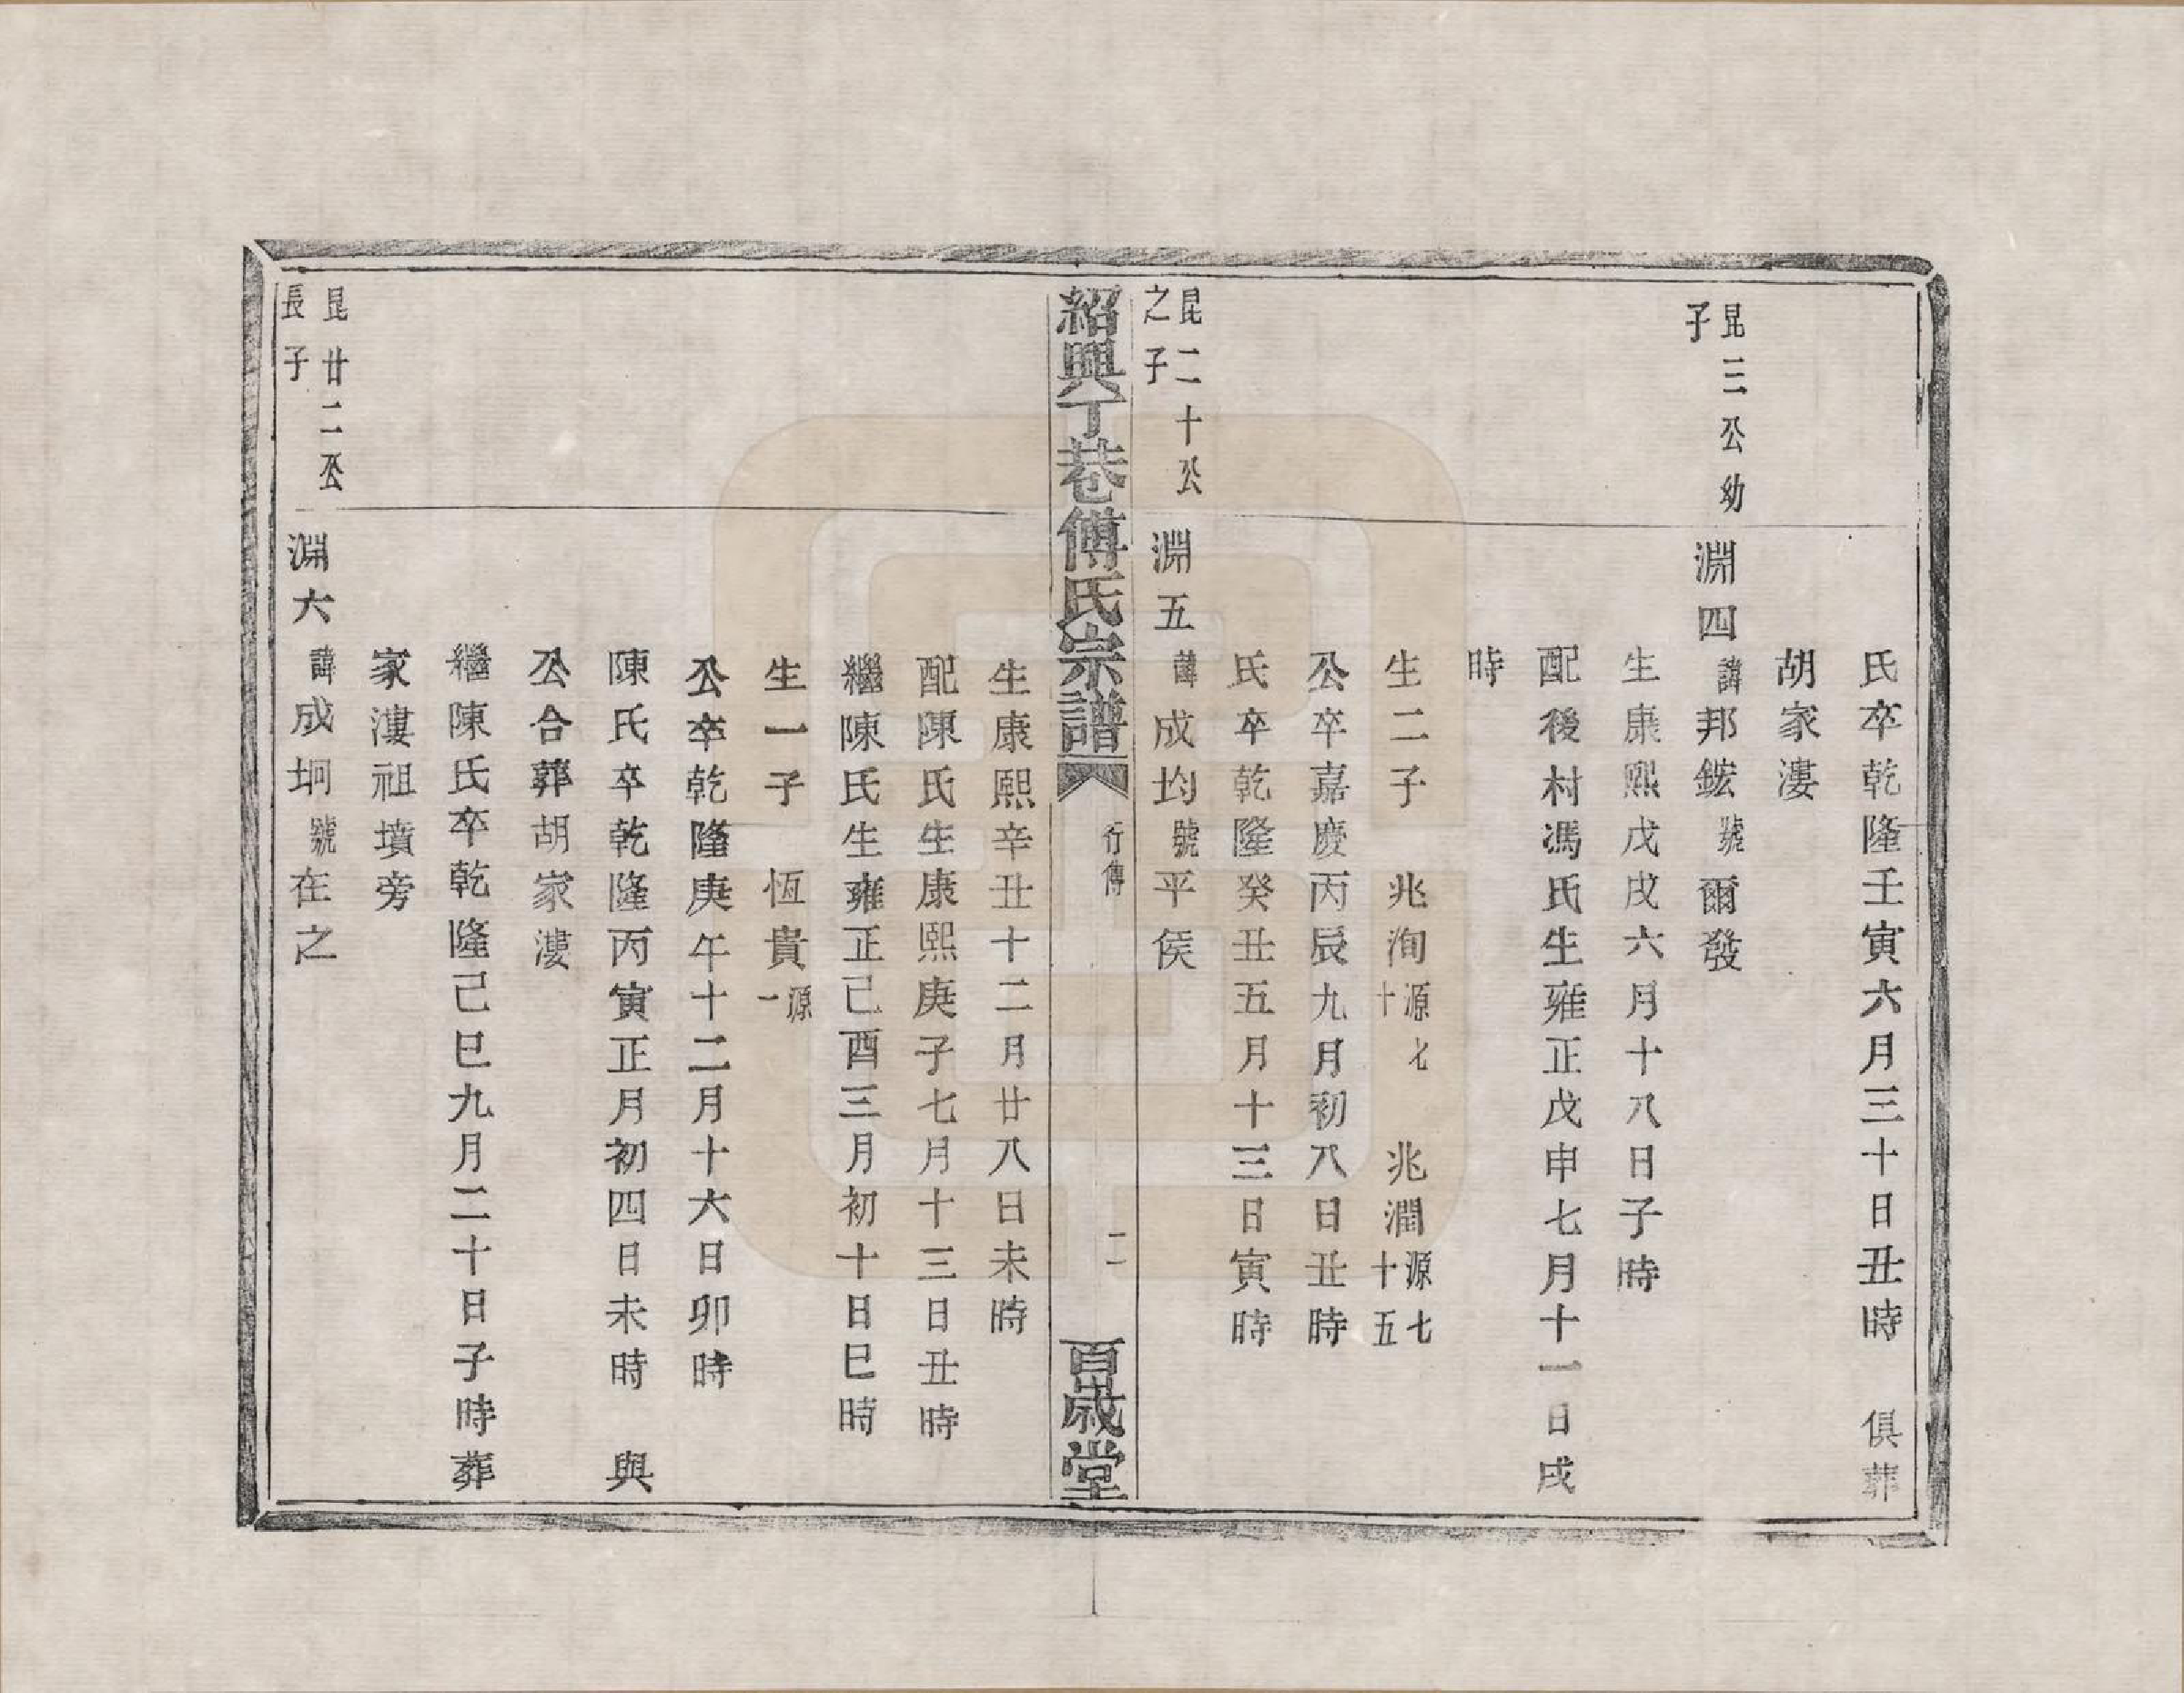 氏卒乾隆壬寅六月三十日丑時　俱葬
胡家漊
昆三公幼
子
淵四諱邦鋐號爾發
生康熙戊戌六月十八日子時
配後村馮氏生雍正戊申七月十一日戌
時
生二子　兆洵源七十　兆澗源七十五
公卒嘉慶丙辰九月初八日丑時
氏卒乾隆癸丑五月十三日寅時
昆二十公
之子
淵五諱成均號平侯
紹興丁巷傅氏宗譜　行傳　二　百歲堂
生康熙辛丑十二月廿八日未時
配陳氏生康熙庚子七月十三日丑時
繼陳氏生雍正己酉三月初十日巳時
生一子　恆貴源一
公卒乾隆庚午十二月十六日卯時
陳氏卒乾隆丙寅正月初四日未時　與
公合葬胡家漊
繼陳氏卒乾隆己巳九月二十日子時葬
家漊祖墳旁
昆廿二公
長子
淵六諱成坰號在之